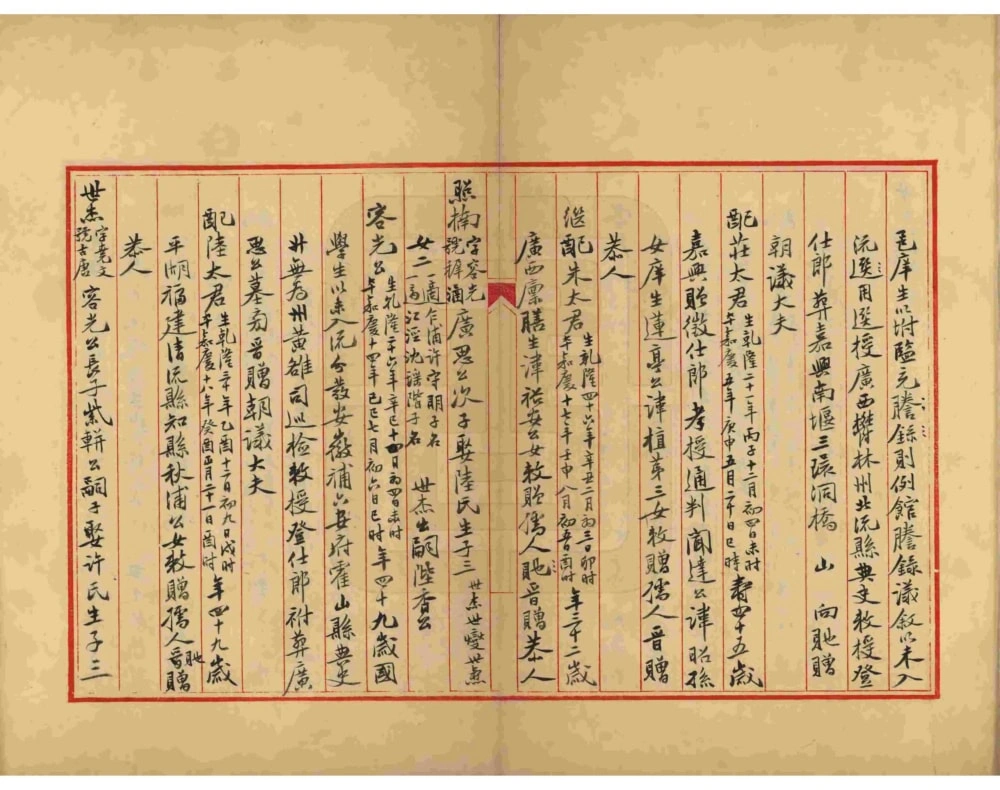 邑庠生以附監充謄錄則例館謄錄議敘以未入
流選用選授廣西鬱林州北流縣典史敕授登
仕郎葬嘉興南堰三環洞橋 山 向貤贈
朝議大夫
配莊太君生乾隆二十一年丙子十二月初四日未時卒嘉慶五年庚申五月二十日巳時壽四十五歲
嘉興贈徵仕郎考授通判聞達公諱昭孫
女庠生蓮亭公諱植第三女敕贈孺人晉贈
恭人
繼配朱太君生乾隆四十六年辛丑二月初三日卯時卒嘉慶十七年壬申八月初五日酉時年三十二歲
廣西廩膳生諱裕安公女敕贈孺人貤晉贈恭人
照楠字容光號稺涵廣思公次子娶陸氏生子三世杰世燮世燾
女二一適乍浦許守明子名一適江涇沈謡階子名 世杰出嗣陛香公
容光公生乾隆三十六年辛巳十四日初四日未時卒嘉慶十四年己巳七月初六日巳時年四十九歲國
學生以未入流分發安徽補六安府霍山縣典史
廾無為州黃雒司巡檢敕授登仕郎祔葬廣
思公墓旁晉贈朝議大夫
配陸太君生乾隆三十年乙酉十二月初九日戌時卒嘉慶十八年癸酉正月二十一日酉時年四十九歲
平湖福建清流縣知縣秋浦公女敕贈孺人貤晉贈
恭人
世杰字堯文號古唐容光公長子紫軿公嗣子娶許氏生子三